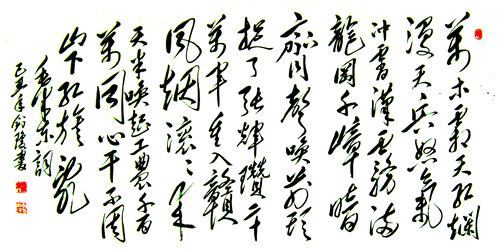 萬木霜天紅爛
漫天兵怒氣
冲霄漢霧满
龍岡千嶂暗
齊聲唤前頭
捉了張輝瓚二十
萬軍重入贛
風烟滚〻来
天半唤起工農千百
萬同心干不周
山下紅旗亂
毛澤東詞
己丑年書